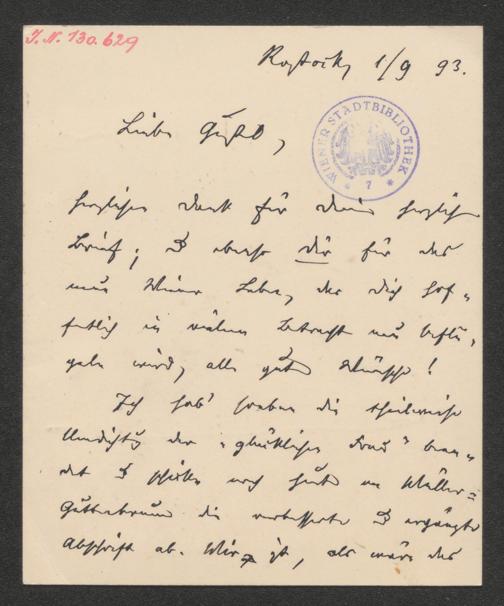 J.N. 130.629
Rostock, 1/9 93.
WIENER STADTBIBLIOTHEK
7
Lieber Gustl,
herzlichen Dank für Deinen herzlichen
Brief; u ebenso dir für das
neue Wiener Leben, das dich hof-
fentlich in vielem Betracht neu beflü-
geln wird, alle guten Wünsche!
Ich hab' soeben die theilweise
Umdichtung der "glücklichen Frau" been-
det u schicke noch heut an Müller-
Guttenbrunn die verbesserte u ergänzte
Abschrift ab. Mir ist, als wäre das